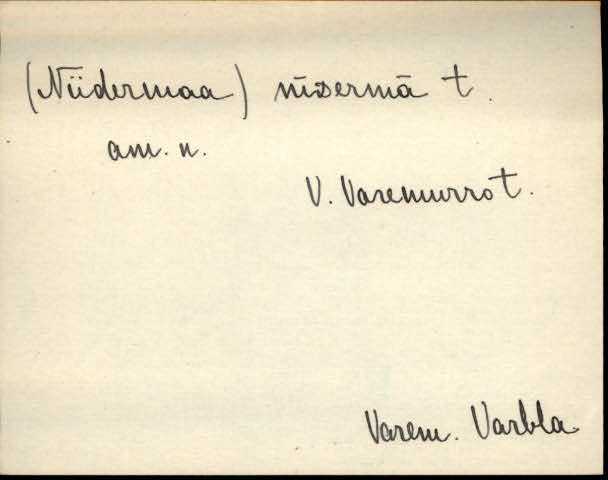 (Niidermaa) nīᴅermā t.
am. n.
V. Varemurrot.
Varem. Varbla